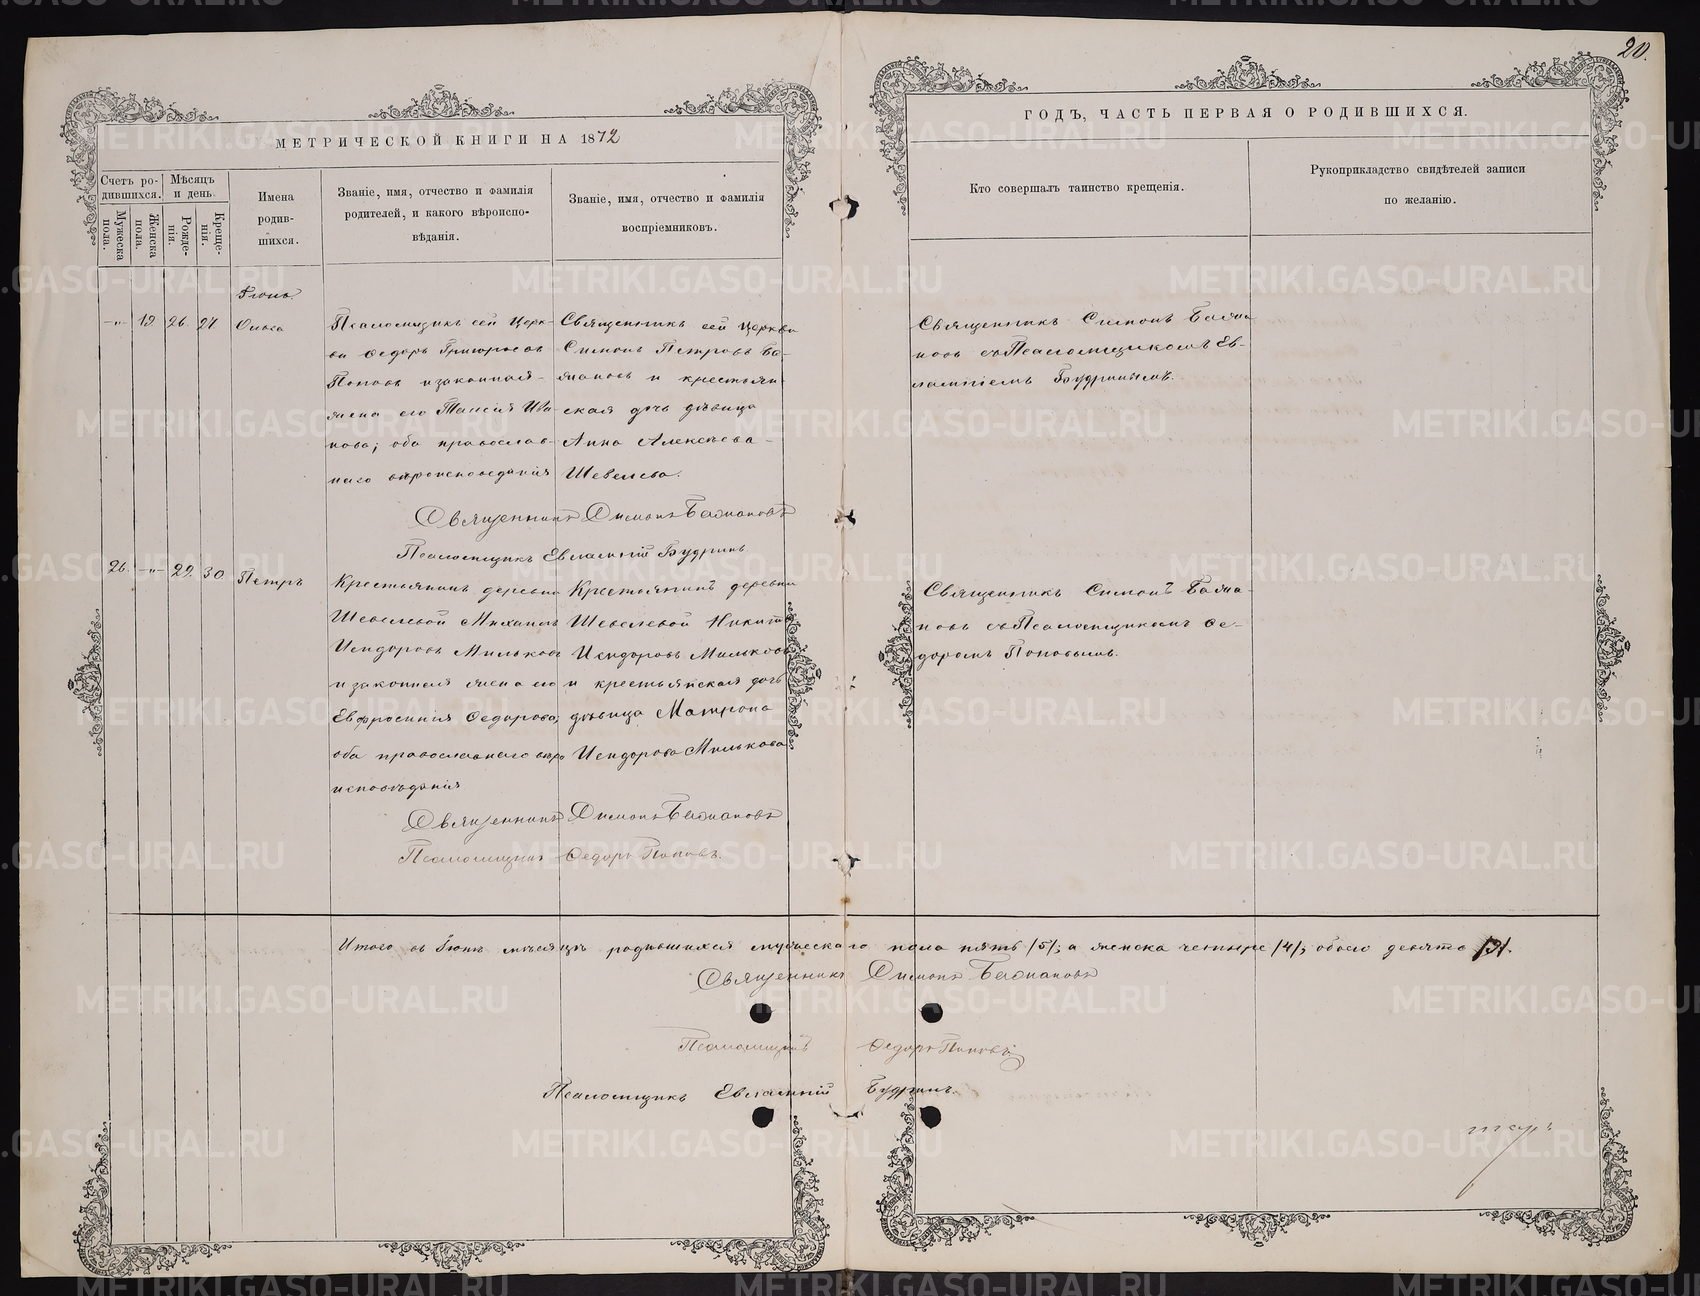 20.
МЕТРИЧЕСКОЙ КНИГИ НА 1872
ГОДЪ, ЧАСТЬ ПЕРВАЯ О РОДИВШИХСЯ.
Счетъ ро-
дившихся.
Мужеска
пола.
Женска
пола.
Мѣсяцъ
и день.
Рожде-
нія.
Креще-
нія.
Имена
родив-
шихся.
Званіе, имя, отчество и фамилія
родителей, и какого вѣроиспо-
вѣданія.
Званіе, имя, отчество и фамилія
воспріемниковъ.
Кто совершалъ таинство крещенія.
Рукоприкладство свидѣтелей записи
по желанію.
Іюнь.
-"- 19. 26. 27. Ольга
Псаломщикъ сей Церк-
ви Ѳедоръ Григорьевъ
Поповъ и законная
жена его Таисія Ива-
нова; оба православ-
наго вѣроисповѣданія
Священникъ сей Церкви
Симонъ Петровъ Ба-
и крестьян-
ская дочь дѣвица
Анна Алексѣева
Шевелева.
Священникъ Симонъ
новъ съ Псаломщикомъ Ев-
лампіемъ Будринымъ.
Священникъ Симонъ
Псаломщикъ Евлампій Будринъ
26. -"- 29. 30. Петръ
Крестьянинъ деревни
Шевелевой Михаилъ
Исидоровъ Мильковъ
и законная жена его
Евфросинія Ѳедорова;
оба православнаго вѣро
исповѣданія
Крестьянинъ деревни
Шевелевой Никита
Исидоровъ Мильковъ
и крестьянская дочь
дѣвица Матрона
Исидорова Милькова
Священникъ Симонъ
новъ съ Псаломщикомъ Ѳе-
доромъ Поповымъ.
Священникъ Симонъ
Псаломщикъ Ѳедоръ Поповъ.
Итого въ Іюнѣ мѣсяцѣ родившихся мужескаго пола пять /5/, а женска четыре /4/, обоего девять /9/.
Священникъ Симонъ
Псаломщикъ Ѳедоръ Поповъ
Псаломщикъ Евлампій Будринъ.
METRIKI.GASO-URAL.RU